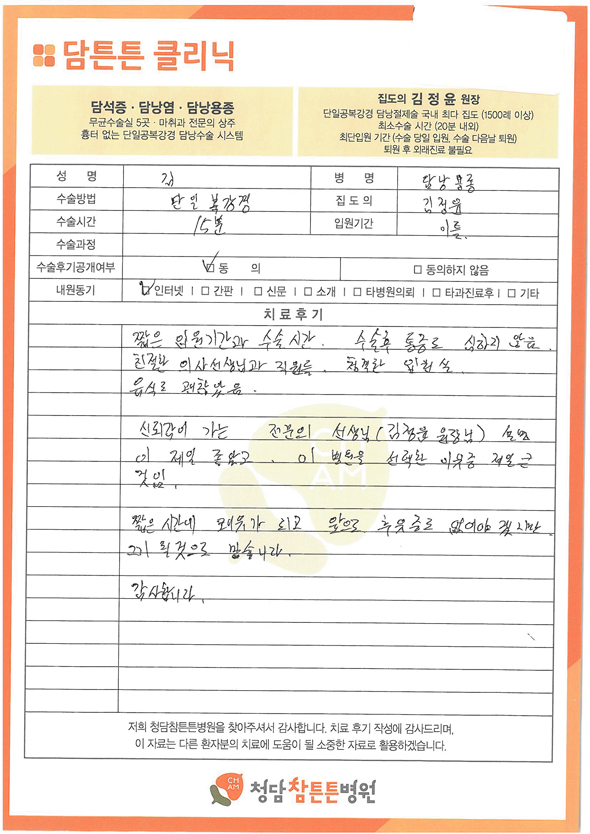 담튼튼 클리닉
담석증 · 담낭염 · 담낭용종
무균수술실 5곳 · 마취과 전문의 상주
흉터 없는 단일공복강경 담낭수술 시스템
집도의 김정윤 원장
단일공복강경 담낭절제술 국내 최다 집도 (1500례 이상)
최소수술 시간 (20분 내외)
최단입원 기간 (수술 당일 입원, 수술 다음날 퇴원)
퇴원 후 외래진료 불필요
성 명 김 병 명 담낭용종
수술방법 단일 복강경 집도의 김정윤
수술시간 15분 입원기간 이틀.
수술과정
수술후기공개여부 ☑ 동 의 □ 동의하지 않음
내원동기 ☑ 인터넷 | □ 간판 | □ 신문 | □ 소개 | □ 타병원의뢰 | □ 타과진료후 | □ 기타
치료후기
짧은 입원기간과 수술시간. 수술후 통증도 심하지 않음.
친절한 의사선생님과 직원들. 청결한 입원실.
음식도 괜찮았음.
신뢰감이 가는 전문의 선생님(김정윤 원장님) 설명
이 제일 좋았고, 이 병원을 선택한 이유중 제일 큰
것임.
짧은 시간에 치유가 되고 앞으로 후유증도 없어야 겠지만
그리 될것으로 믿습니다.
감사합니다.
저희 청담참튼튼병원을 찾아주셔서 감사합니다. 치료 후기 작성에 감사드리며,
이 자료는 다른 환자분의 치료에 도움이 될 소중한 자료로 활용하겠습니다.
CHAM 청담참튼튼병원